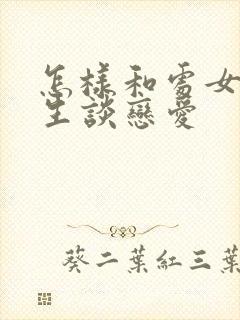 怎樣和雪女
生談戀愛
葵二葉紅三葉